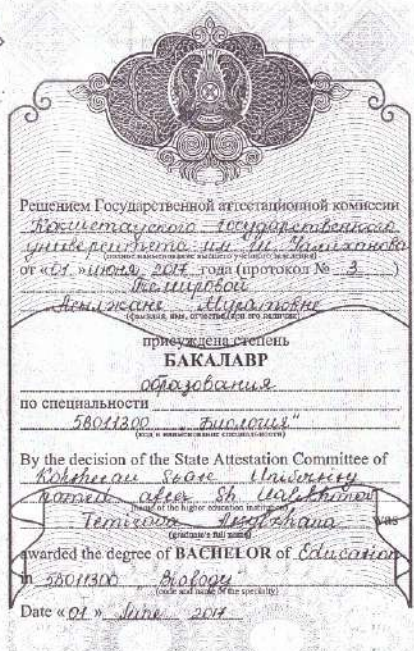 Решением Государственной аттестационной комиссии
Кокшетауского государственного
университета им. Ш. Уалиханова
(полное наименование высшего учебного заведения)
от «01» июня 2017 года (протокол № 3)
Темировой
Асылжане Муратовне
(фамилия, имя, отчество (при его наличии))
присуждена степень
БАКАЛАВР
образования
по специальности
5B011300 „Биология"
(код и наименование специальности)
By the decision of the State Attestation Committee of
Kokshetau State University
named after Sh Ualikhanov
(name of the higher education institution)
Temirova Assylzhana was
(graduate's full name)
awarded the degree of BACHELOR of Education
in 5B011300 „Biology"
(code and name of the specialty)
Date «01» June 2017